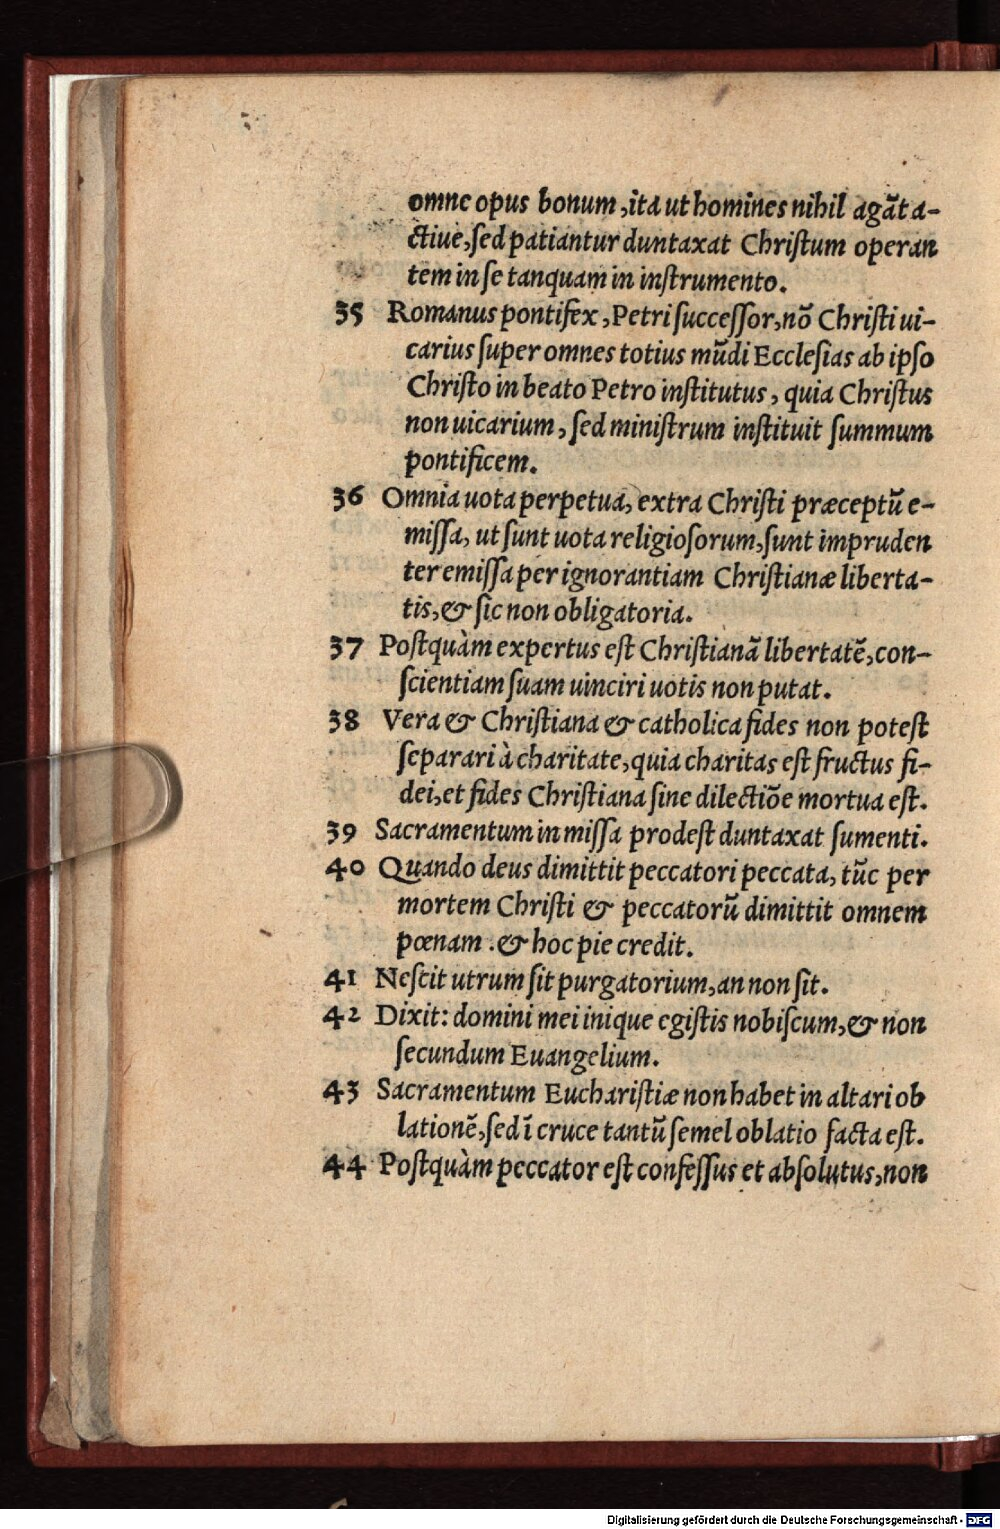 omne opus bonum, ita ut homines nihil agãt a-
ctiue, ſed patiantur duntaxat Chriſtum operan
tem in ſe tanquam in inſtrumento.
35 Romanus pontifex, Petri ſucceſſor, nõ Chriſti ui-
carius ſuper omnes totius mũdi Eccleſias ab ipſo
Chriſto in beato Petro inſtitutus, quia Chriſtus
non uicarium, ſed miniſtrum inſtituit ſummum
pontificem.
36 Omnia uota perpetua, extra Chriſti præceptũ e-
miſſa, ut ſunt uota religioſorum, ſunt impruden
ter emiſſa per ignorantiam Chriſtianæ liberta-
tis, & ſic non obligatoria.
37 Poſtquàm expertus eſt Chriſtianã libertatẽ, con-
ſcientiam ſuam uinciri uotis non putat.
38 Vera & Chriſtiana & catholica fides non poteſt
ſeparari à charitate, quia charitas eſt fructus fi-
dei, et fides Chriſtiana ſine dilectiõe mortua eſt.
39 Sacramentum in miſſa prodeſt duntaxat ſumenti.
40 Quando deus dimittit peccatori peccata, tũc per
mortem Chriſti & peccatorũ dimittit omnem
pœnam. & hoc pie credit.
41 Neſcit utrum ſit purgatorium, an non ſit.
42 Dixit: domini mei inique egiſtis nobiſcum, & non
ſecundum Euangelium.
43 Sacramentum Euchariſtiæ non habet in altari ob
lationẽ, ſed ĩ cruce tantũ ſemel oblatio facta eſt.
44 Poſtquàm peccator eſt confeſſus et abſolutus, non
Digitalisierung gefördert durch die Deutsche Forschungsgemeinschaft - DFG